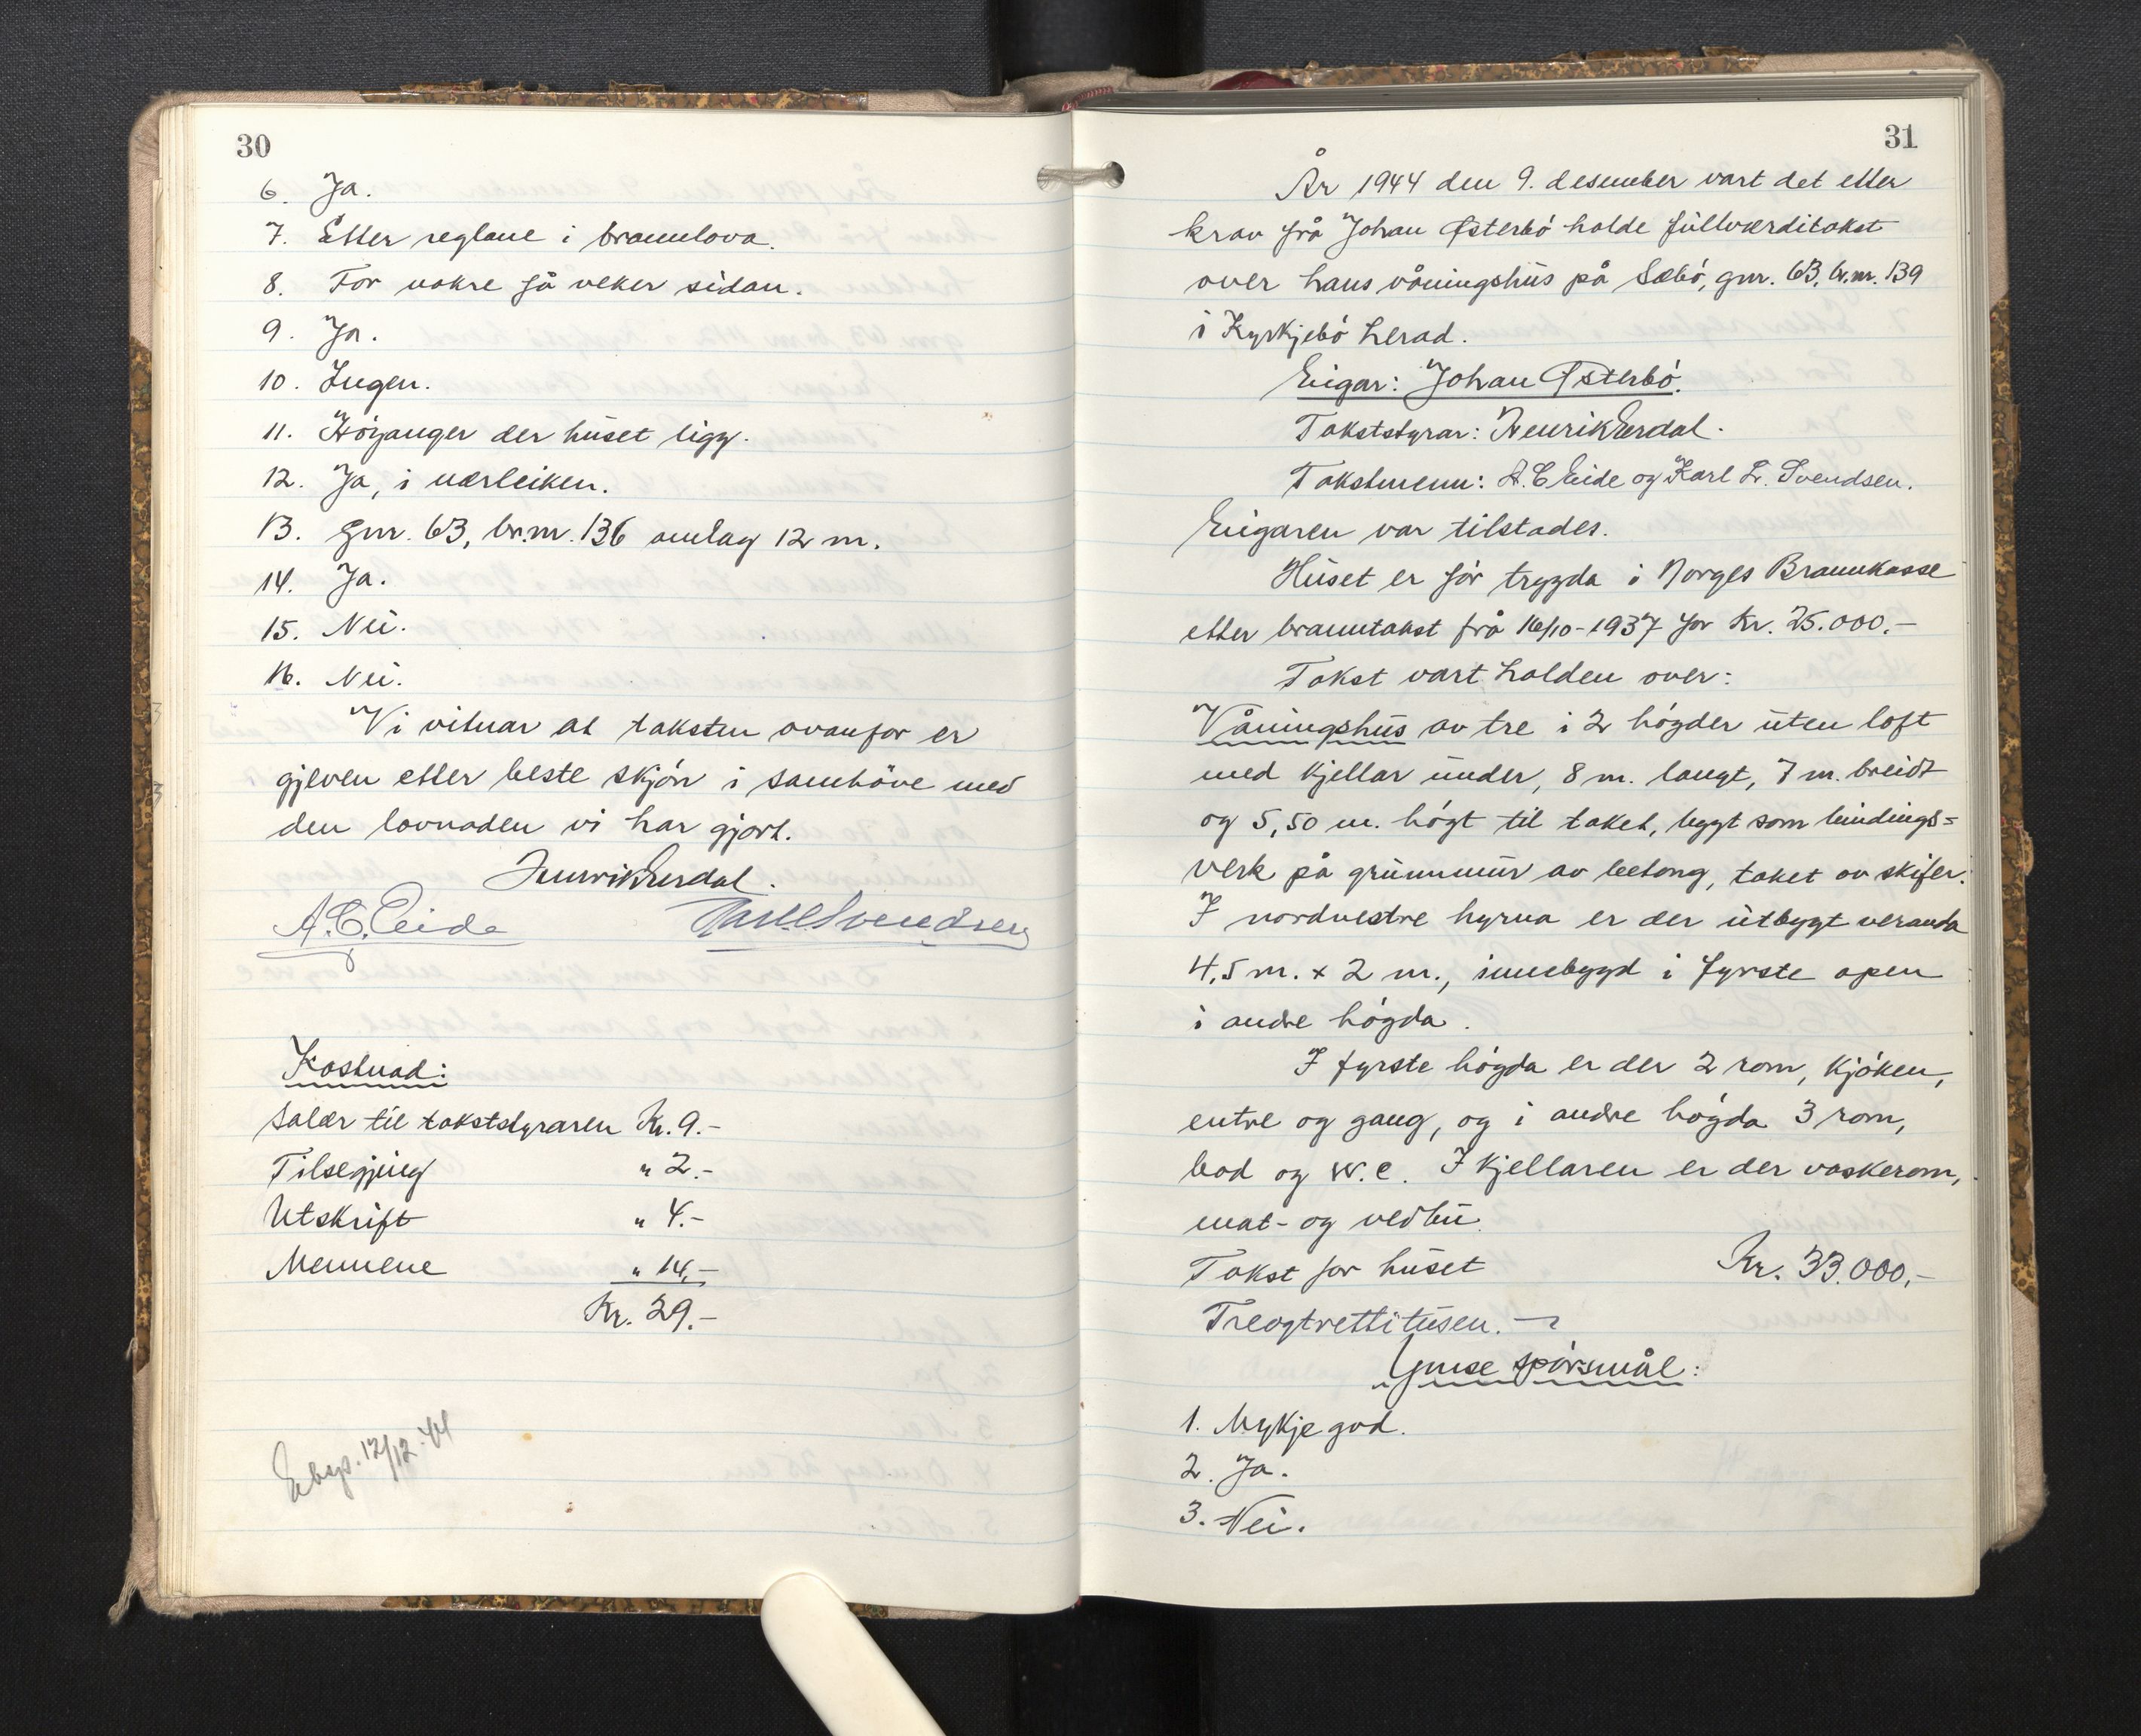 30
6. Ja.
7. Etter reglane i brannlova.
8. For nokre få veker sidan.
9. Ja.
10. Ingen.
11. Höyanger der huset ligg.
12. Ja, i nærleiken.
13. gnr. 63, br.nr. 136 omlag 12 m.
14. Ja.
15. Nei.
16. Nei.
Vi vitnar at taksten ovanfor er
gjeven etter beste skjön i samhöve med
den lovnaden vi har gjort.
Henrik Erdal.
A. C. Eide Karl Svendsen
Kostnad:
Salær til takststyraren Kr. 9.-
Tilsegjing " 2.-
Utskrift " 4.-
Mennene " 14,-
Kr. 29.-
12/12-44
31
År 1944 den 9. desember vart det etter
krav frå Johan Østerbö halde fullverditakst
over hans våningshus på Sæbö, gnr. 63, br.nr. 139
i Kyrkjebö herad.
Eigar: Johan Østerbö.
Takststyrar: Henrik Erdal.
Takstmenn: A. C. Eide og Karl L. Svendsen.
Eigaren var tilstades.
Huset er för trygda i Norges Brannkasse
etter branntakst frå 16/10-1937 for Kr. 25.000.-
Takst vart halden over:
Våningshus av tre i 2 högder uten loft
med kjellar under, 8 m. langt, 7 m. breidt
og 5,50 m. högt til taket, bygt som bindings=
verk på grunnmur av betong, taket av skifer.
I nordvestre hyrna er der utbygt veranda
4,5 m. x 2 m., innebygd i fyrste open
i andre högda.
I fyrste högda er der 2 rom, kjöken,
entre og gang, og i andre högda 3 rom,
bad og w.c. I kjellaren er der vaskerom,
mat- og vedbu.
Takst for huset Kr. 33.000,-
Treogtrettitusen. —
Ymse spörsmål:
1. Mykje god.
2. Ja.
3. Nei.